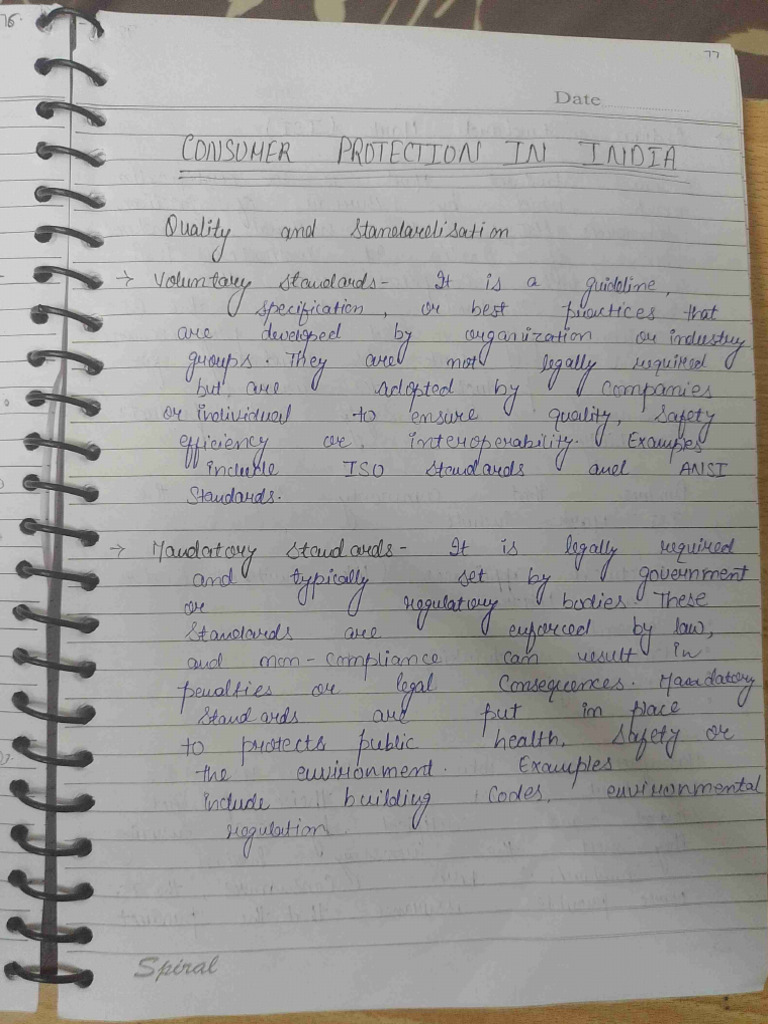 76.
77
Date
CONSUMER PROTECTION IN INDIA
Quality and Standardisation
→ Voluntary Standards - It is a guideline,
specification, or best practices that
are developed by organization or industry
groups. They are not legally required
but are adopted by companies
or individual to ensure quality, safety
efficiency or interoperability. Examples
include ISO Standards and ANSI
Standards.
→ Mandatory Standards - It is legally required
and typically set by government
or regulatory bodies. These
standards are enforced by law,
and non-compliance can result in
penalties or legal consequences. Mandatory
standards are put in place
to protects public health, safety or
the environment. Examples
include building codes, environmental
regulation.
Spiral